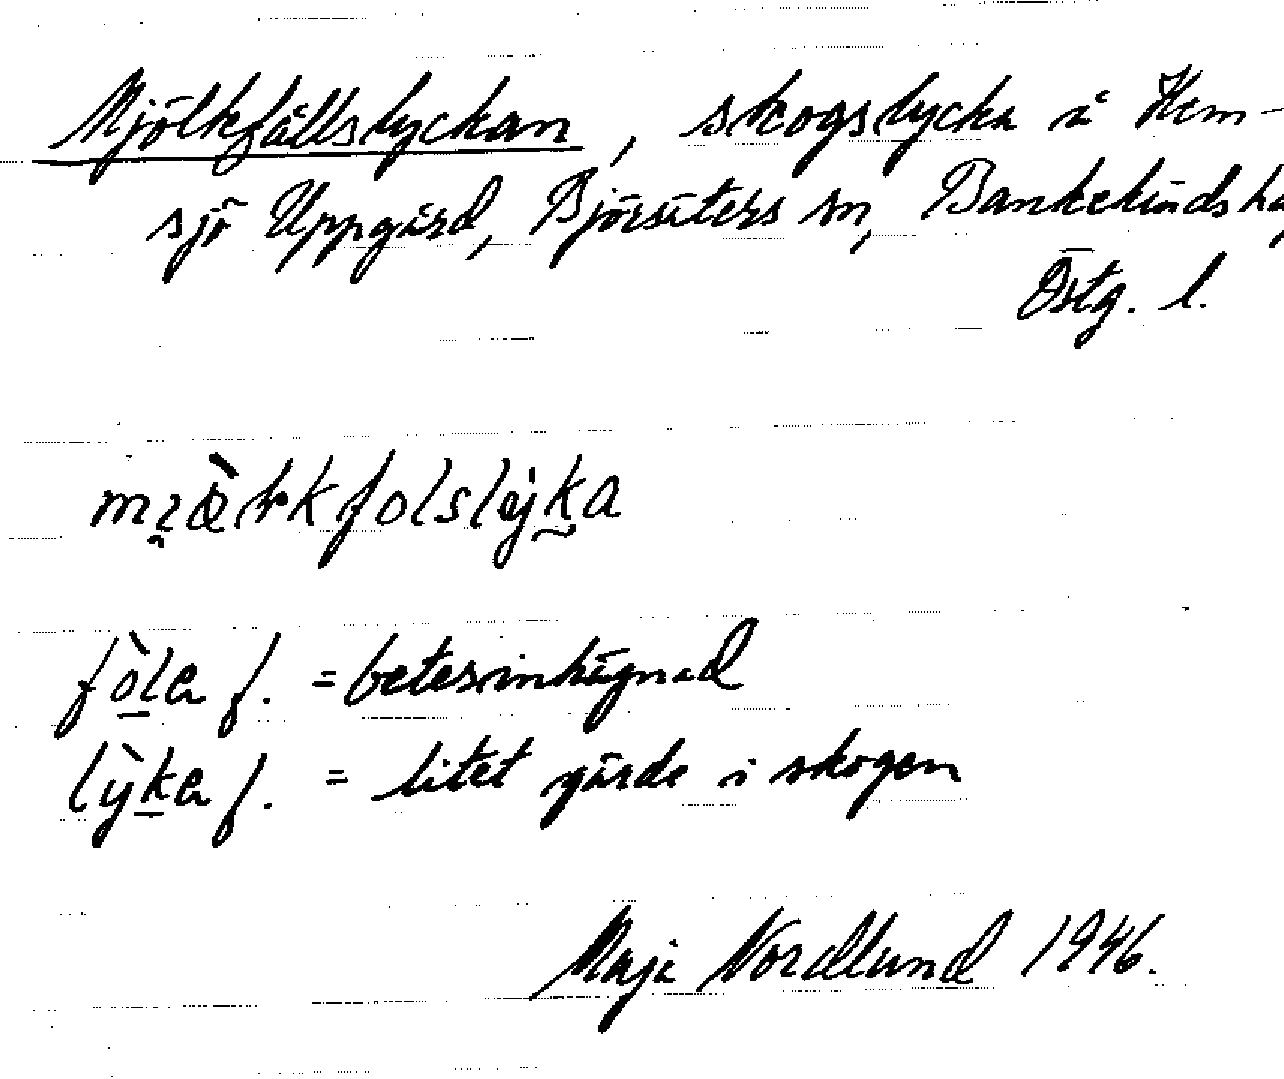 Mjölkfållslyckan, skogslycka å Hem-
sjö Uppgård, Björsäters sn, Bankekinds hd
Östg. l.
fòla f. = betesinhägnad
lỳka f. = litet gärde i skogen
Maja Nordlund 1946.